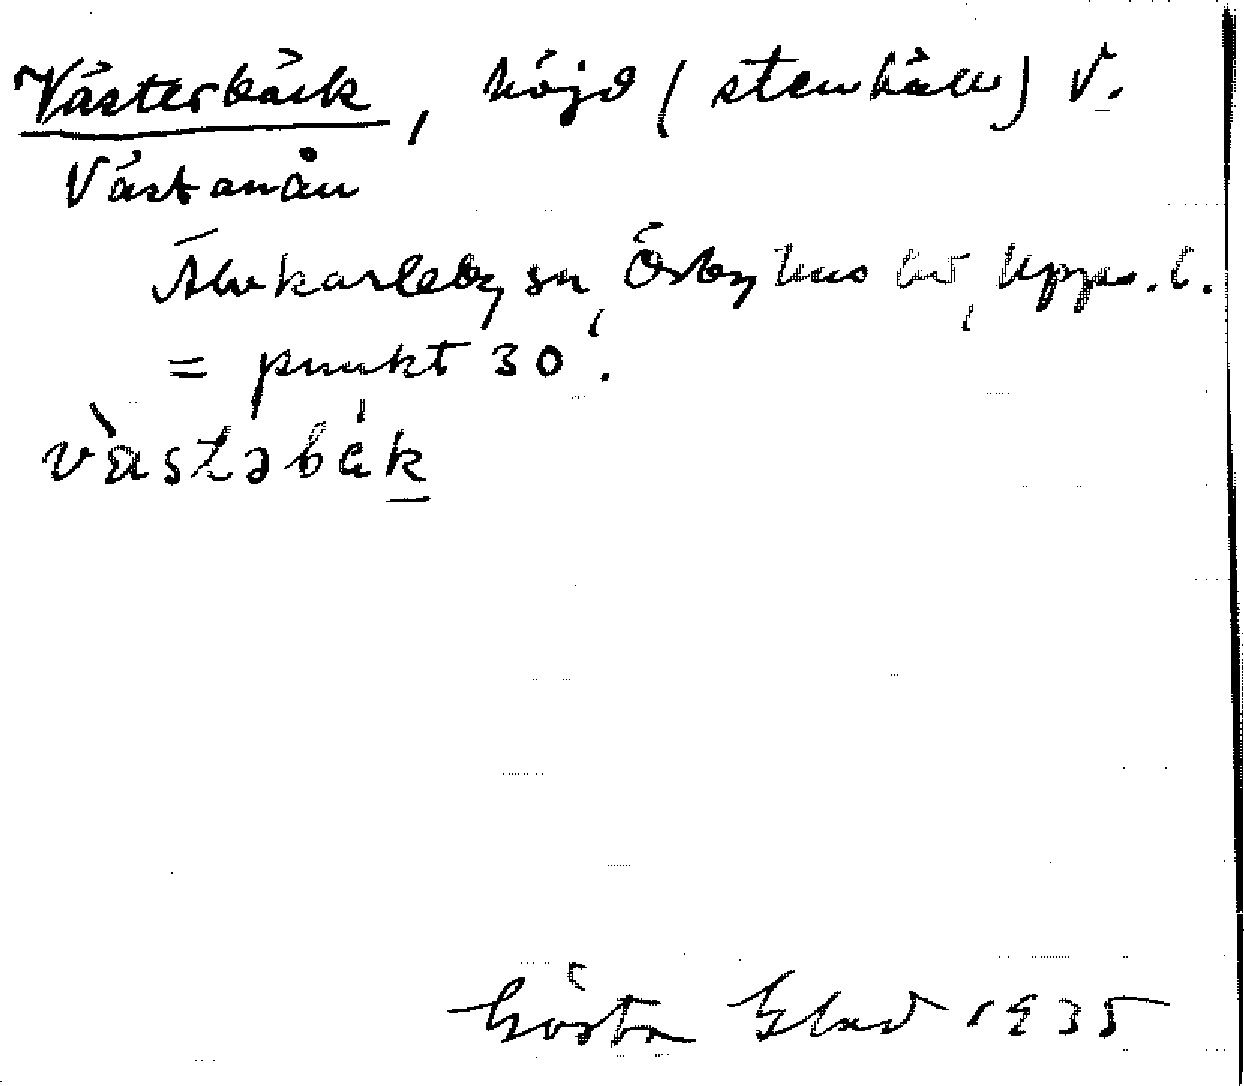 Västerbäck, höjd (stenhäll) V.
Västanån
Älvkarleby sn, Örbyhus hd, Upps. l.
= punkt 30.
vàstəbák
Gösta Blad 1935